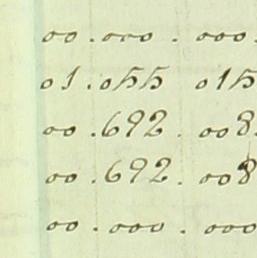 00.000.000.
01.055 015
00.692.008.
00.692.008
00.000.000